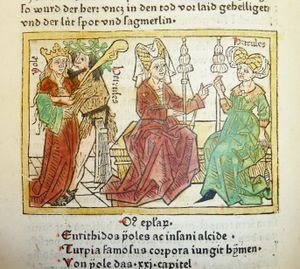 so wurd der herr vncz in den tod vor laid gehelliget
vnd der lüt spot vnd sagmerlin.
yole
hercules
hercules
Eurithidos yoles ac insani alcide
Turpia famosus corpora iungit hymen.
Von yole das .xxj. capitel